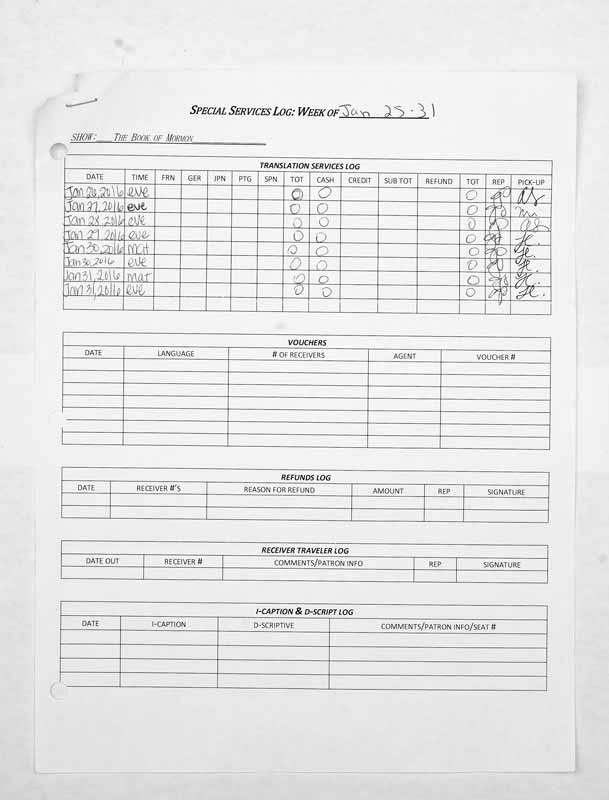 SPECIAL SERVICES LOG: WEEK OF Jan 25-31
SHOW: THE BOOK OF MORMON
TRANSLATION SERVICES LOG
DATE TIME FRN GER JPN PTG SPN TOT CASH CREDIT SUB TOT REFUND TOT REP PICK-UP
Jan 26, 2016 eve 0 0 0
Jan 27, 2016 eve 0 0 0
Jan 28, 2016 eve 0 0 0
Jan 29, 2016 eve 0 0 0
Jan 30, 2016 mat 0 0 0
Jan 30, 2016 eve 0 0 0
Jan 31, 2016 mat 0 0 0
Jan 31, 2016 eve 0 0 0
VOUCHERS
DATE LANGUAGE # OF RECEIVERS AGENT VOUCHER #
REFUNDS LOG
DATE RECEIVER #'S REASON FOR REFUND AMOUNT REP SIGNATURE
RECEIVER TRAVELER LOG
DATE OUT RECEIVER # COMMENTS/PATRON INFO REP SIGNATURE
I-CAPTION & D-SCRIPT LOG
DATE I-CAPTION D-SCRIPTIVE COMMENTS/PATRON INFO/SEAT #